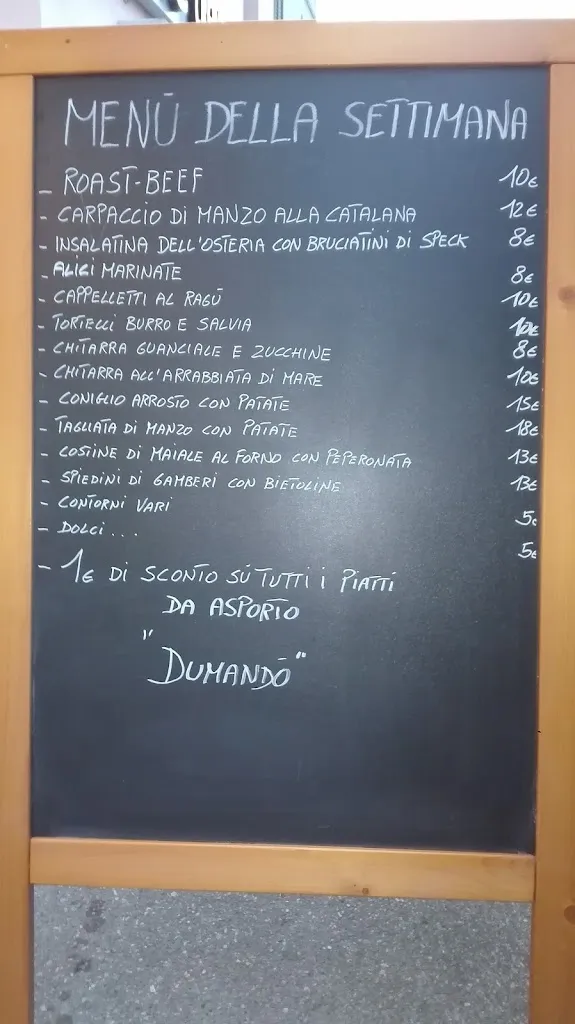 MENÙ DELLA SETTIMANA
- ROAST-BEEF 10€
- CARPACCIO DI MANZO ALLA CATALANA 12€
- INSALATINA DELL'OSTERIA CON BRUCIATINI DI SPECK 8€
- ALICI MARINATE 8€
- CAPPELLETTI AL RAGÙ 10€
- TORTELLI BURRO E SALVIA 10€
- CHITARRA GUANCIALE E ZUCCHINE 8€
- CHITARRA ALL'ARRABBIATA DI MARE 10€
- CONIGLIO ARROSTO CON PATATE 15€
- TAGLIATA DI MANZO CON PATATE 18€
- COSTINE DI MAIALE AL FORNO CON PEPERONATA 13€
- SPIEDINI DI GAMBERI CON BIETOLINE 13€
- CONTORNI VARI 5€
- DOLCI... 5€
- 1€ DI SCONTO SU TUTTI I PIATTI
DA ASPORTO
"DUMANDÒ"